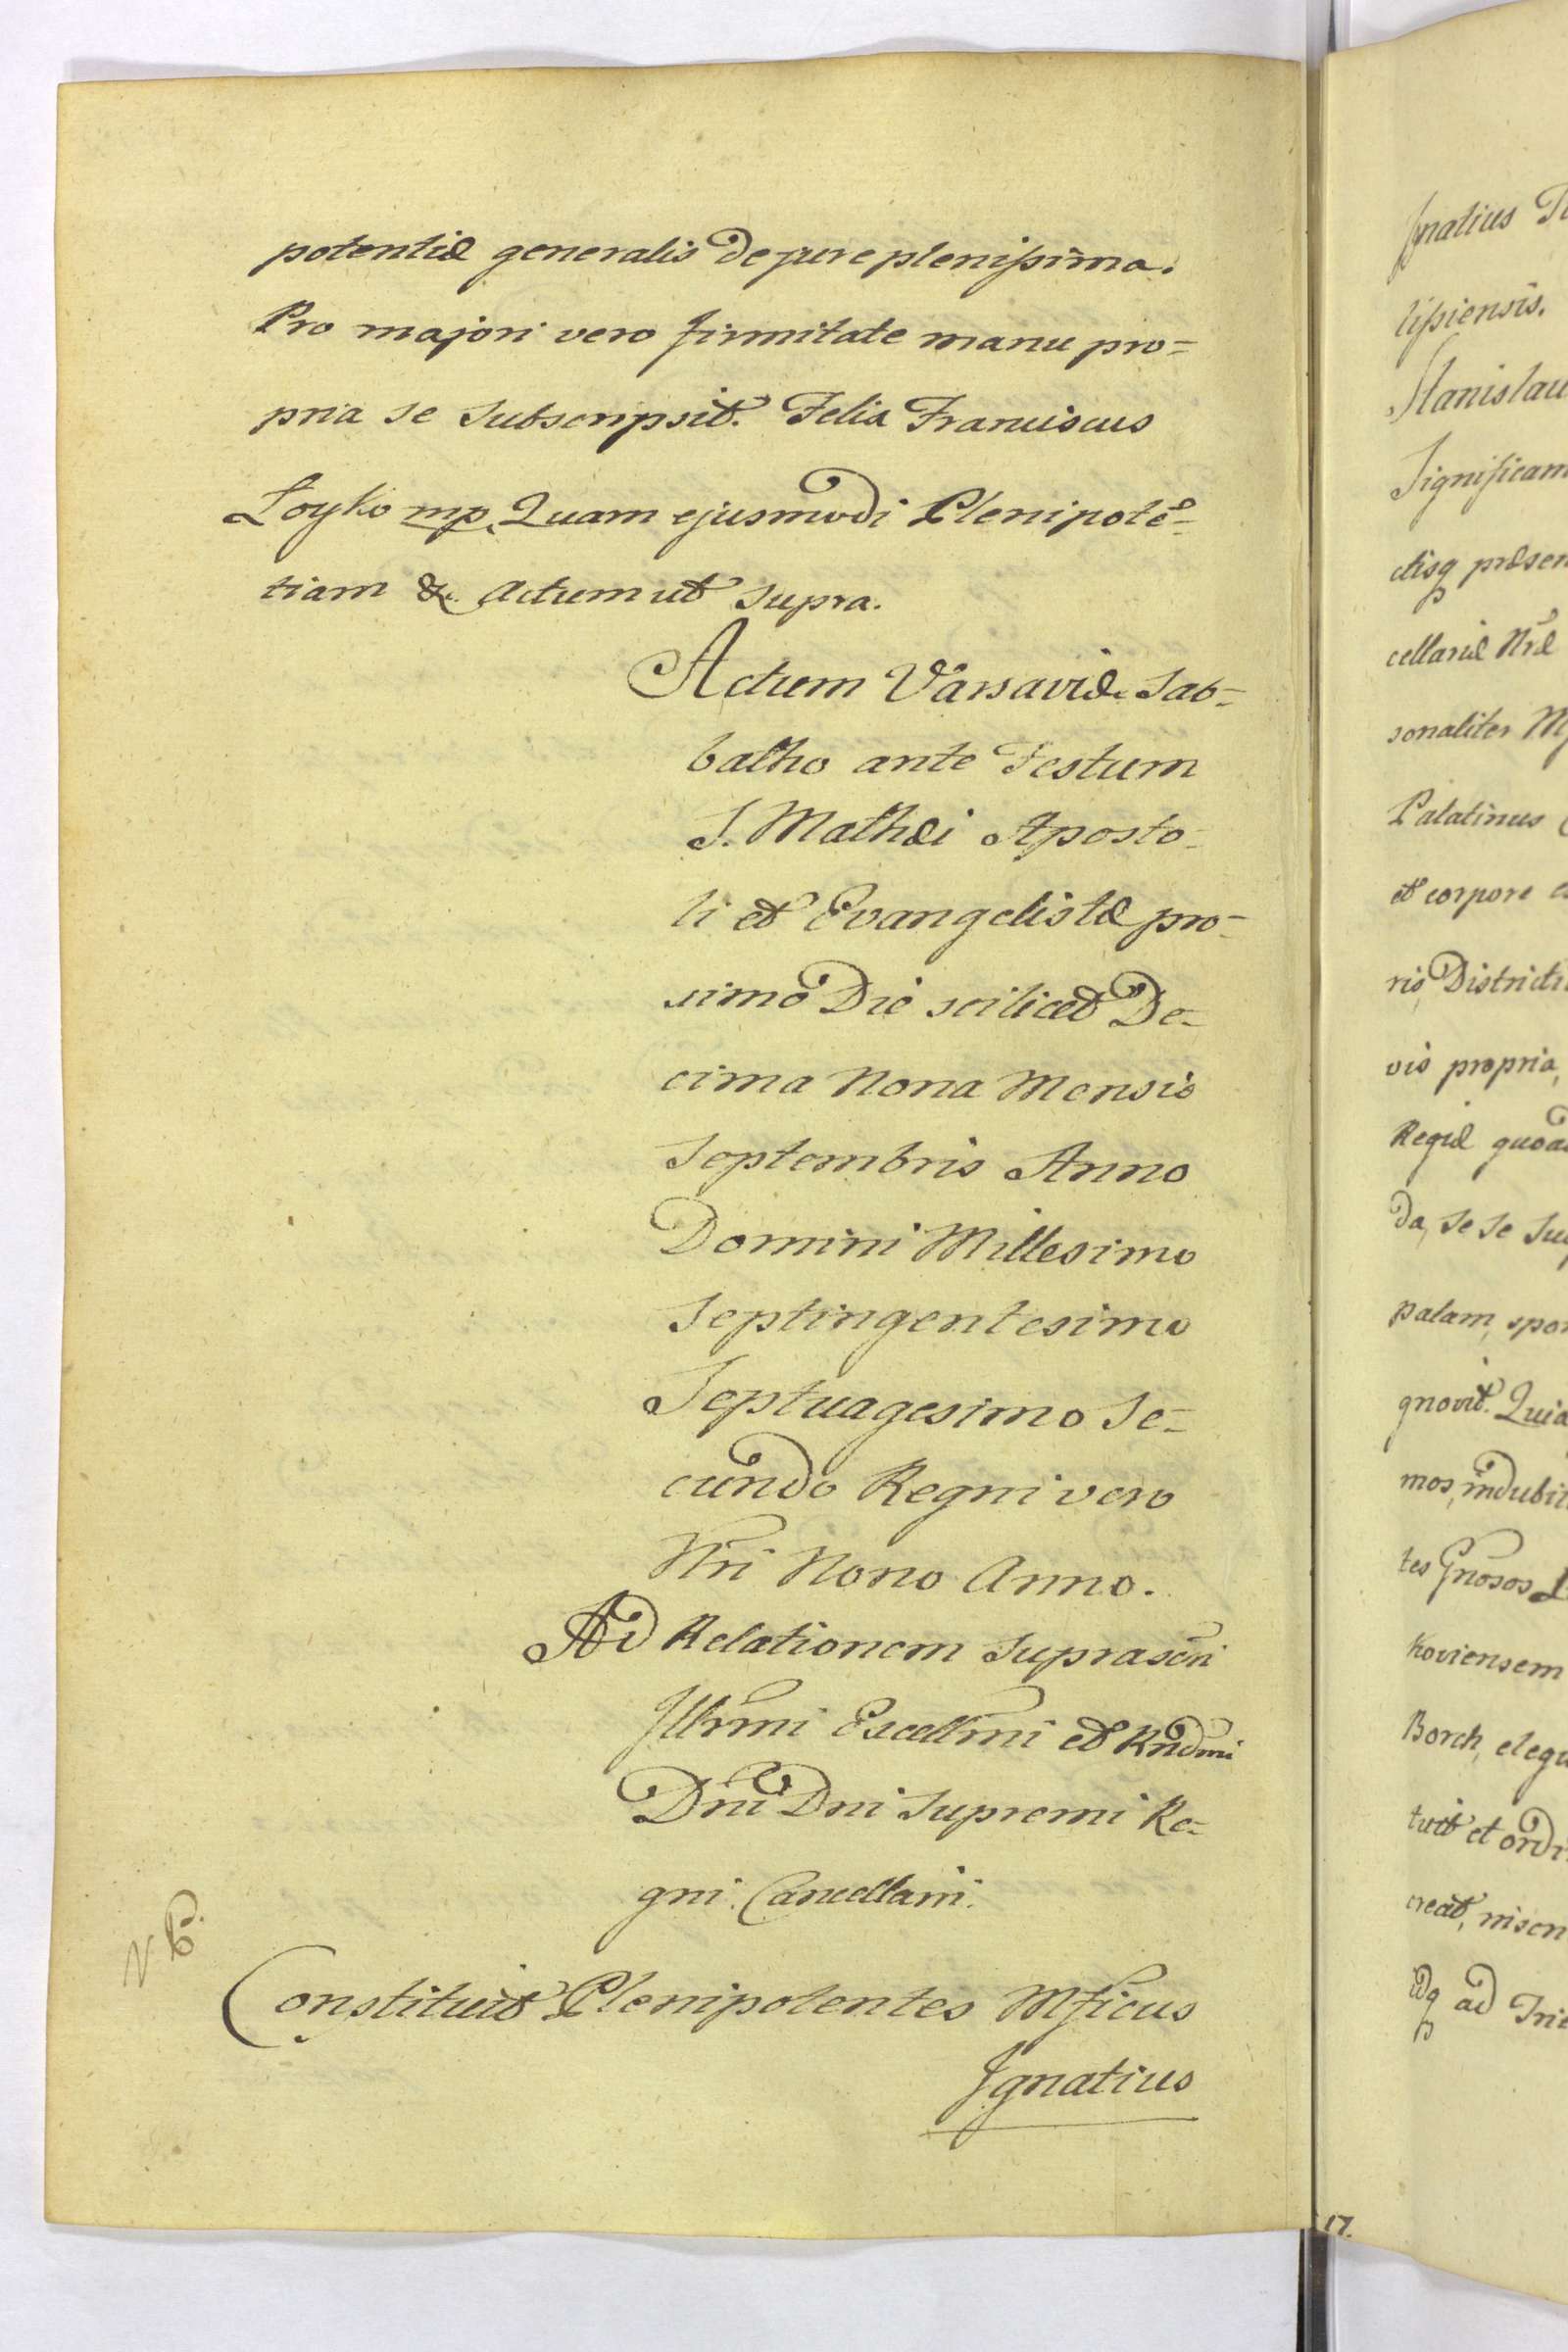 potentiæ generalis de jure plenissima.
Pro majori vero firmitate manu pro=
pria se subscripsit. Felix Franciscus
Łoyko mp. Quam ejusmodi Plenipotē=
tiam &c. Actum ut supra.
Actum Varsaviæ Sab=
batho ante Festum
S. Mathæi Aposto=
li et Evangelistæ pro=
ximo Die scilicet De=
cima Nona Mensis
Septembris Anno
Domini Millesimo
Septingentesimo
Septuagesimo Se=
cundo Regni vero
Nri Nono Anno.
Ad Relationem suprascri
Illrmi Excellmi et Rndmi
Dni Dni Supremi Re=
gni Cancellarii.
Constituit Plenipotentes Mficus
Ignatius
Ignatius
lissiensis.
Significam
ctisq præsen
cellariæ Nræ
sonaliter
Palatinus
et corpore
ris Districtu
vis propria,
Regiæ quoad
da, se se
palam, spon
gnovit. Quia
mos, indubit
tes Gnosos
koviensem
Borch, elegi
tuit et ordi
creat,
idq ad
17.